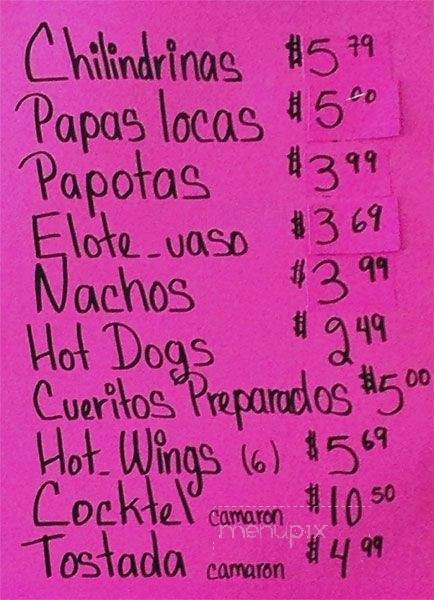 Chilindrinas $5 79
Papas locas $5 00
Papotas $3 99
Elote_vaso $3 69
Nachos $3 99
Hot Dogs $2 49
Cueritos Preparados $5 00
Hot_Wings (6) $5 69
Cocktel camaron $10 50
menupix
Tostada camaron $4 99